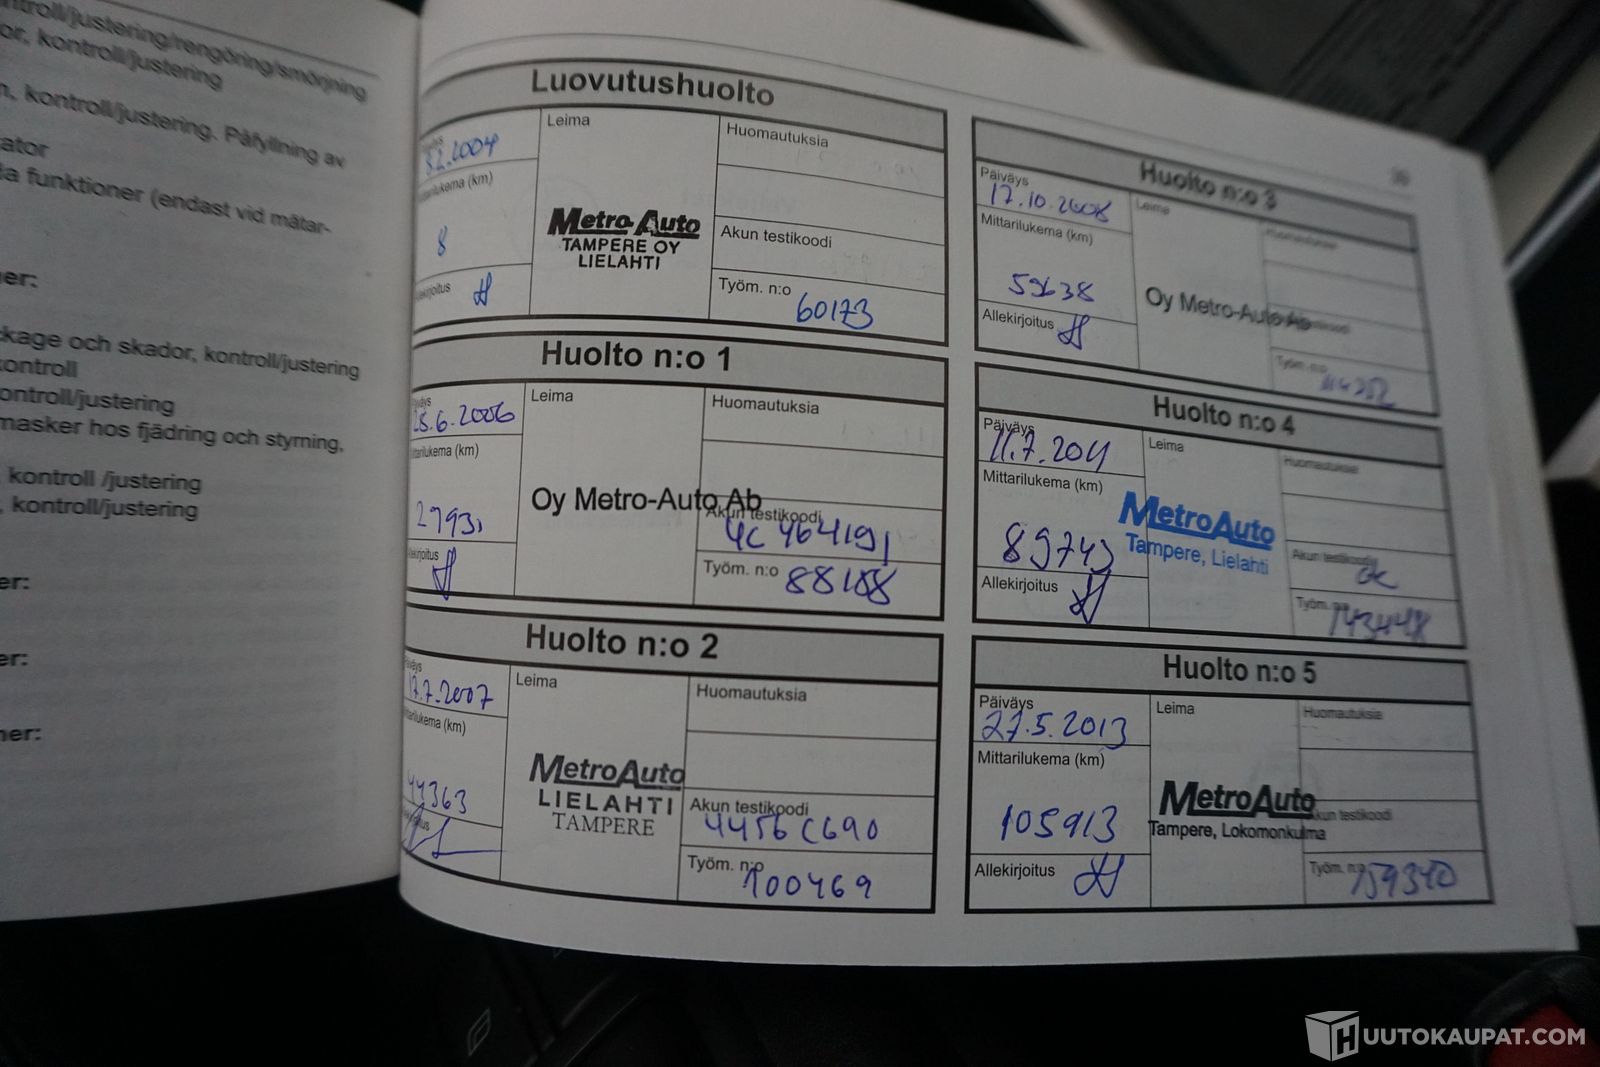 ntroll/justering/rengöring/smörjning
or, kontroll/justering
n, kontroll/justering. Påfyllning av
ator
la funktioner (endast vid mätar-
ner:
ckage och skador, kontroll/justering
kontroll
ontroll/justering
masker hos fjädring och styrning,
kontroll /justering
, kontroll/justering
er:
er:
ner:
Luovutushuolto
Leima
Huomautuksia
2.2004
Mittarilukema (km)
8
Metro-Auto
TAMPERE OY
LIELAHTI
Akun testikoodi
Allekirjoitus
Työm. n:o
60173
Huolto n:o 1
Päiväys
28.6.2006
Leima
Huomautuksia
Mittarilukema (km)
2793
Oy Metro-Auto Ab
Akun testikoodi
4C464191
Allekirjoitus
Työm. n:o
88188
Huolto n:o 2
Päiväys
17.7.2007
Leima
Huomautuksia
Mittarilukema (km)
44363
MetroAuto
LIELAHTI
TAMPERE
Akun testikoodi
4456C690
Työm. n:o
100469
Huolto n:o 3
Päiväys
17.10.2008
Leima
Huomautuksia
Mittarilukema (km)
59638
Oy Metro-Auto Ab
Allekirjoitus
Työm. n:o
114252
Huolto n:o 4
Päiväys
11.7.2011
Leima
Huomautuksia
Mittarilukema (km)
89743
MetroAuto
Tampere, Lielahti
Akun testikoodi
ok
Allekirjoitus
Työm. n:o
143448
Huolto n:o 5
Päiväys
27.5.2013
Leima
Huomautuksia
Mittarilukema (km)
105913
MetroAuto
Tampere, Lokomonkulma
Akun testikoodi
Allekirjoitus
Työm. n:o
159340
HUUTOKAUPAT.COM